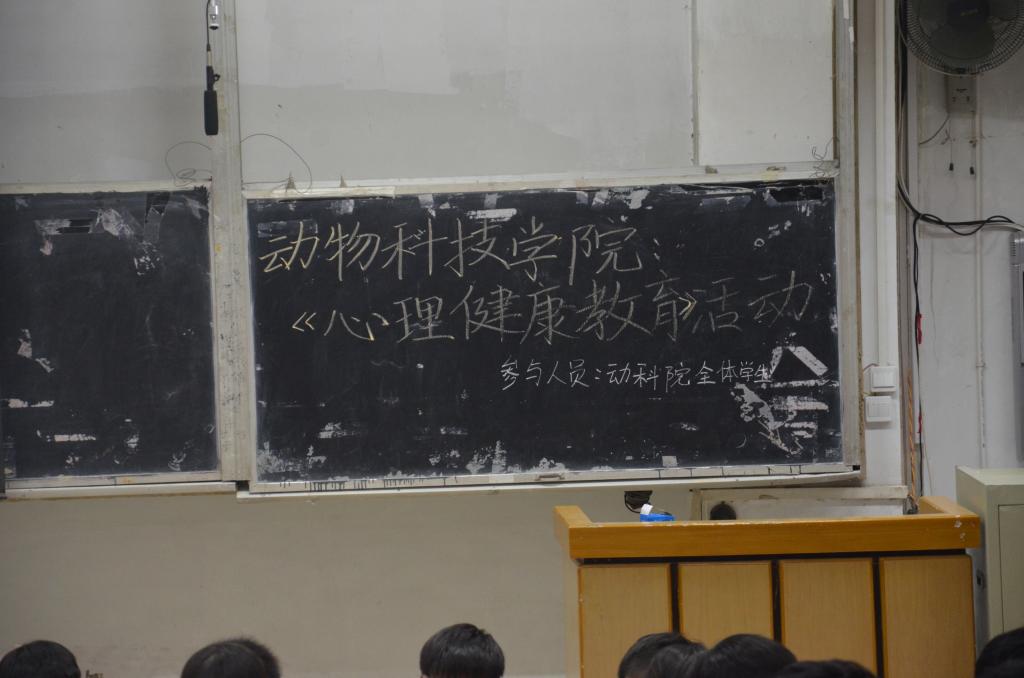 动物科技学院：
《心理健康教育》活动
参与人员：动科院全体学生